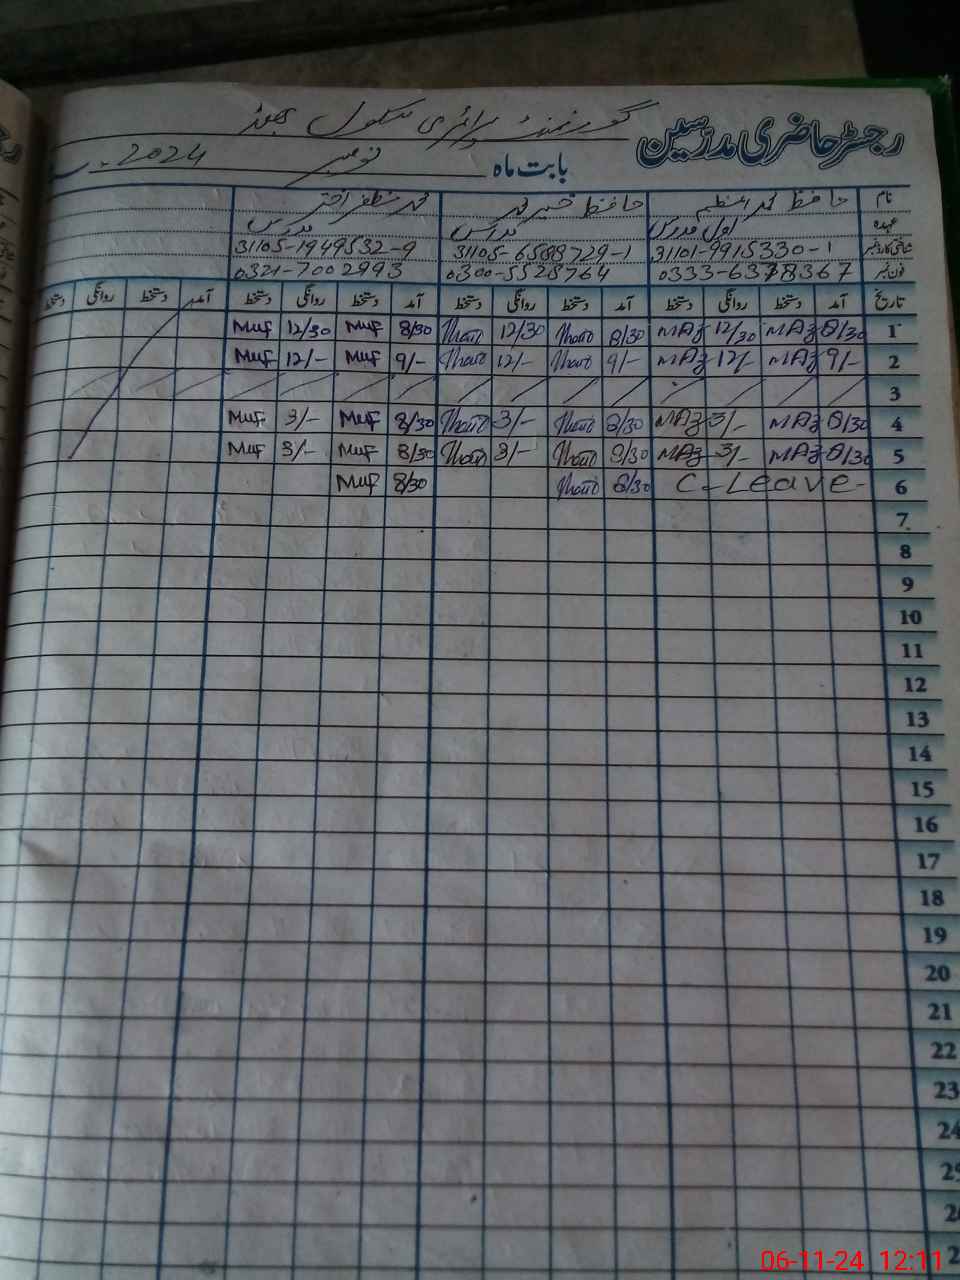 رجسٹر حاضری مدرسین گورنمنٹ پرائمری سکول
بابت ماہ نومبر 2024
نام حافظ محمد اعظم حافظ محمد محمد مظفر اختر
عہدہ اول مدرس مدرس مدرس
شناختی کارڈ نمبر 31101-9915330-1 31105-6588729-1 31105-1949532-9
فون نمبر 0333-6378367 0300-5528764 0321-7002993
تاریخ آمد دستخط روانگی دستخط آمد دستخط روانگی دستخط آمد دستخط روانگی دستخط آمد دستخط روانگی دستخط
1 8/30 MAz 12/30 MAz 8/30 12/30 8/30 Muf 12/30 Muf
2 9/- MAz 12/- MAz 9/- 12/- 9/- Muf 12/- Muf
3
4 8/30 MAz 3/- MAz 8/30 3/- 8/30 Muf 3/- Muf
5 8/30 MAz 3/- MAz 8/30 3/- 8/30 Muf 3/- Muf
6 C-Leave 8/30 8/30 Muf
7
8
9
10
11
12
13
14
15
16
17
18
19
20
21
22
23
24
25
06-11-24 12:11